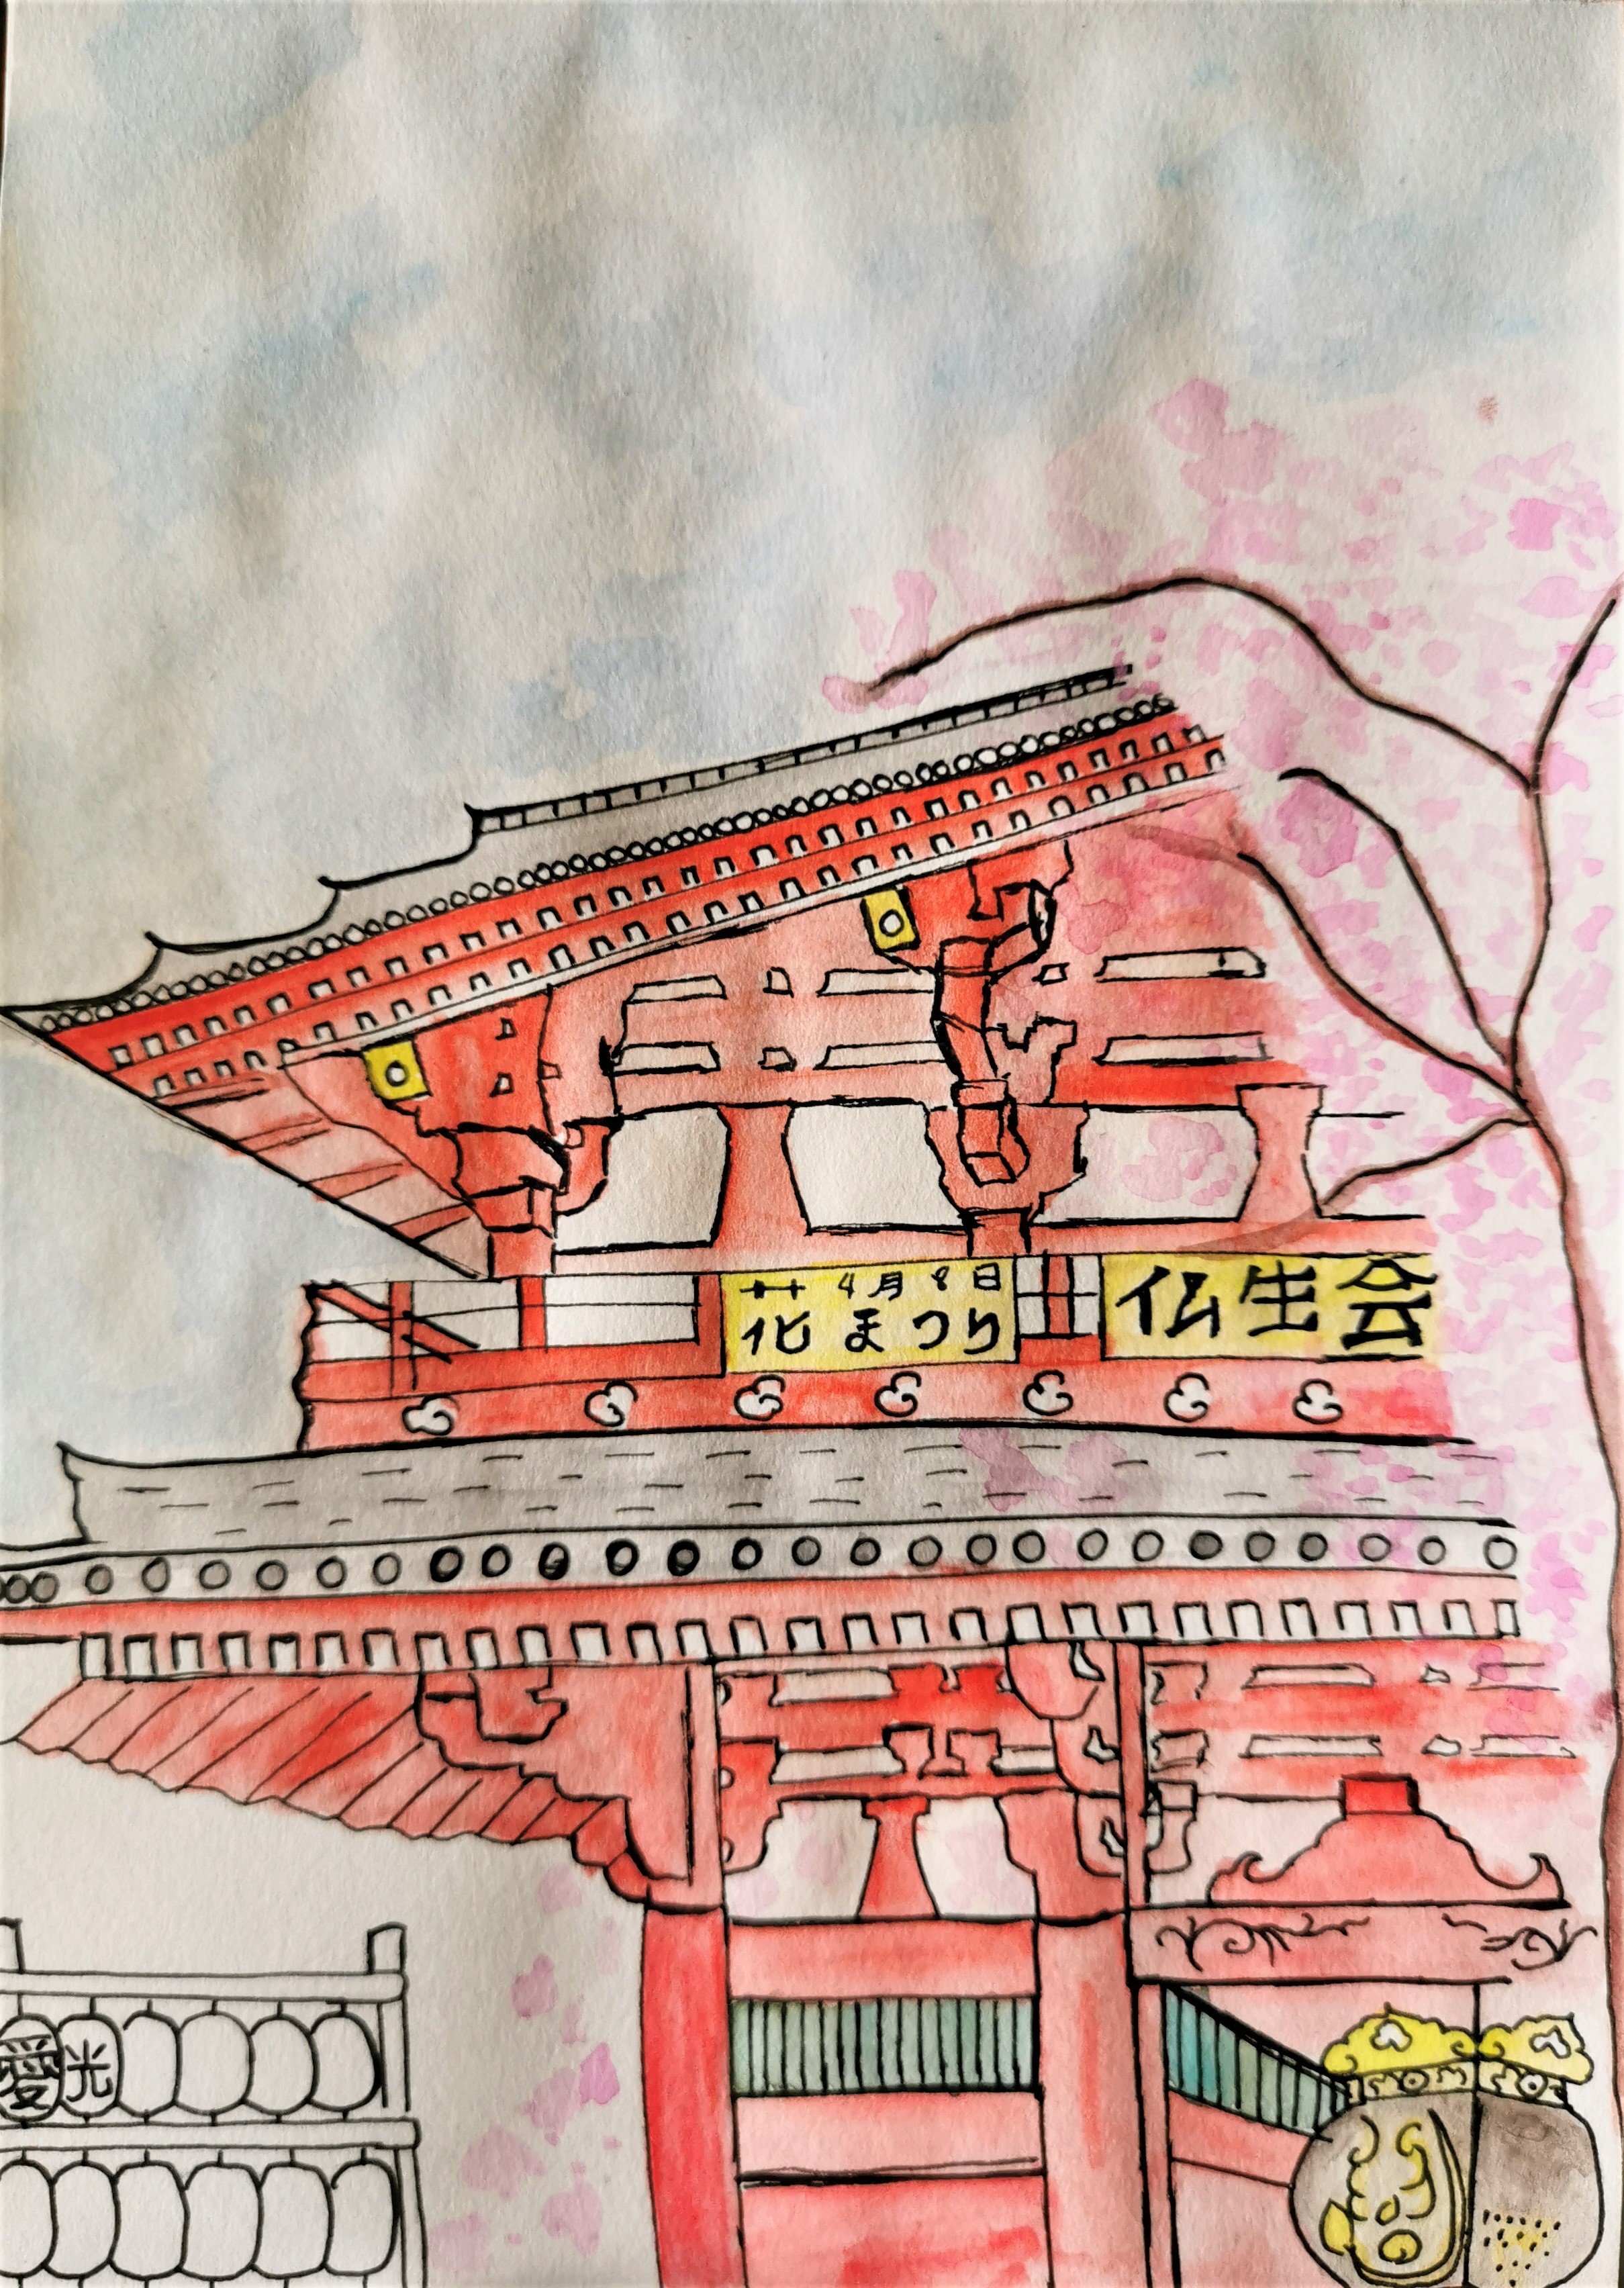 4月8日
花まつり
仏生会
愛光